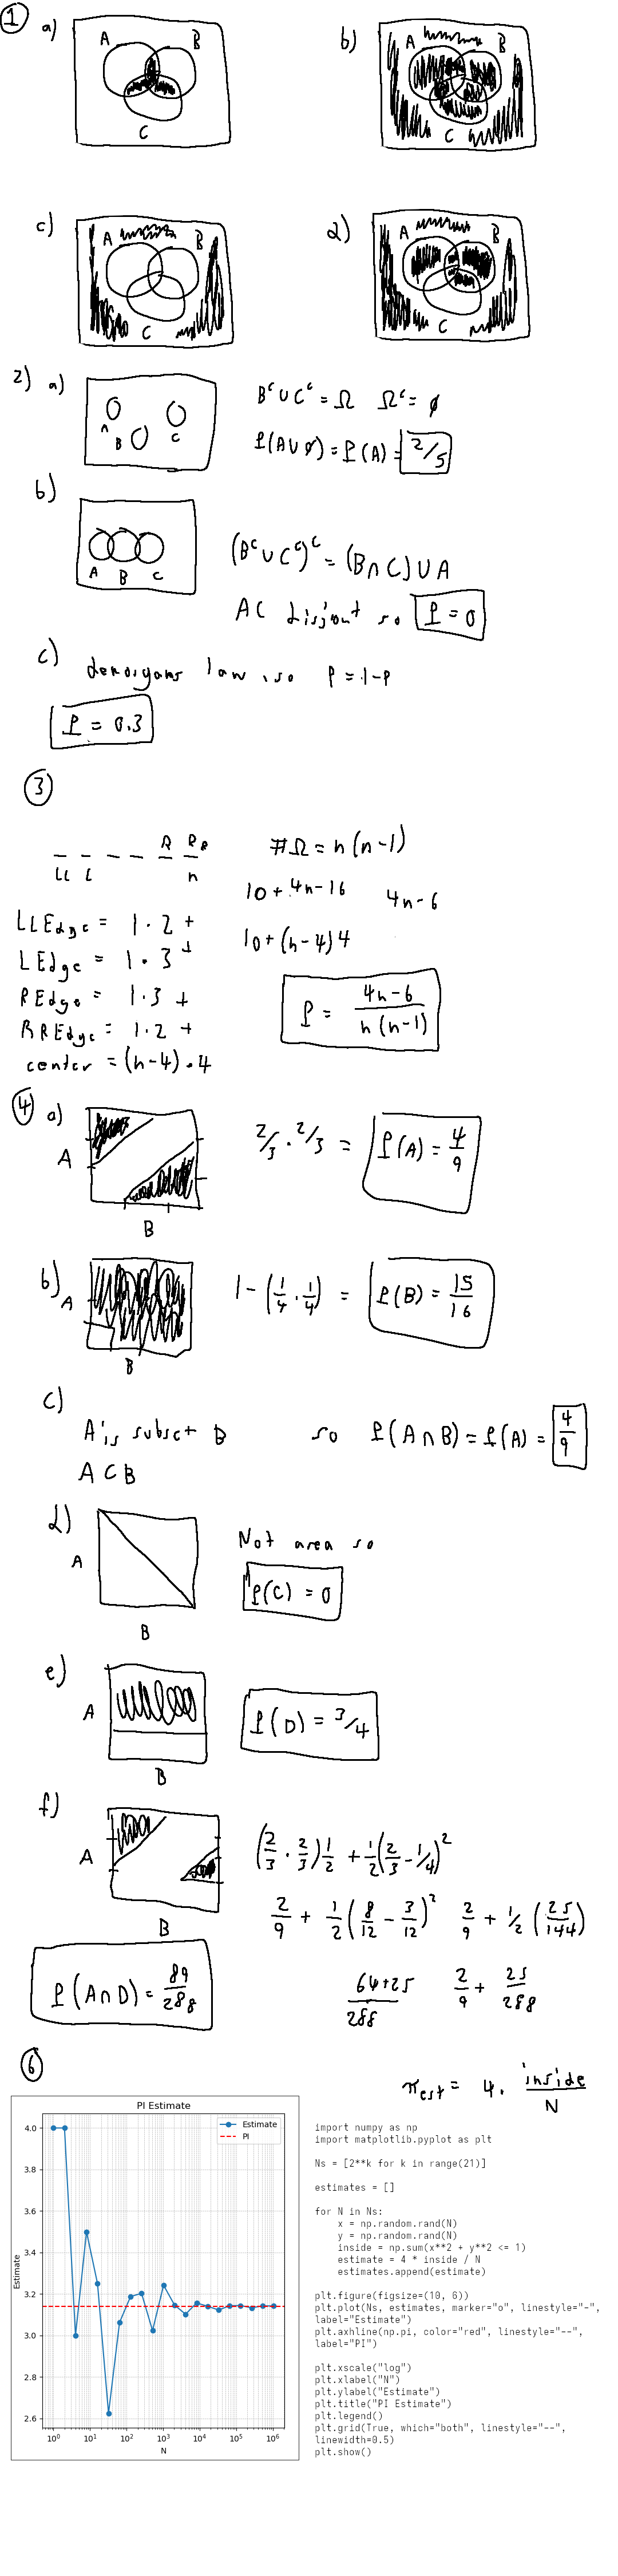 1 a) A B C
b) A B C
c) A B C
d) A B C
2) a) A B C
Bᶜ ∪ Cᶜ = Ω Ωᶜ = ∅
P(A∪∅) = P(A) = 2/5
b) A B C
(Bᶜ ∪ Cᶜ)ᶜ = (B∩C)∪A
AC disjoint so P = 0
c) demorgans law, so P = 1-P
P = 0.3
3
R RR
LL L n
#Ω = n(n-1)
10 + 4n-16 4n-6
10+(n-4)4
LLEdge = 1·2 +
LEdge = 1·3 +
REdge = 1·3 +
RREdge = 1·2 +
center = (n-4)·4
P = 4n-6 / n(n-1)
4 a) A B
2/3 · 2/3 = P(A) = 4/9
b) A B
1-(1/4 · 1/4) = P(B) = 15/16
c)
A is subset B so P(A∩B) = P(A) = 4/9
A⊂B
d) A B
Not area so
P(C) = 0
e) A B
P(D) = 3/4
f) A B
(2/3 · 2/3)1/2 + 1/2(2/3 - 1/4)²
2/9 + 1/2(8/12 - 3/12)² 2/9 + 1/2(25/144)
P(A∩D) = 89/288
64+25/288 2/9 + 25/288
6
π est = 4 · inside/N
PI Estimate
Estimate
PI
4.0
3.8
3.6
3.4
3.2
3.0
2.8
2.6
Estimate
10⁰ 10¹ 10² 10³ 10⁴ 10⁵ 10⁶
N
import numpy as np
import matplotlib.pyplot as plt
Ns = [2**k for k in range(21)]
estimates = []
for N in Ns:
x = np.random.rand(N)
y = np.random.rand(N)
inside = np.sum(x**2 + y**2 <= 1)
estimate = 4 * inside / N
estimates.append(estimate)
plt.figure(figsize=(10, 6))
plt.plot(Ns, estimates, marker="o", linestyle="-",
label="Estimate")
plt.axhline(np.pi, color="red", linestyle="--",
label="PI")
plt.xscale("log")
plt.xlabel("N")
plt.ylabel("Estimate")
plt.title("PI Estimate")
plt.legend()
plt.grid(True, which="both", linestyle="--",
linewidth=0.5)
plt.show()